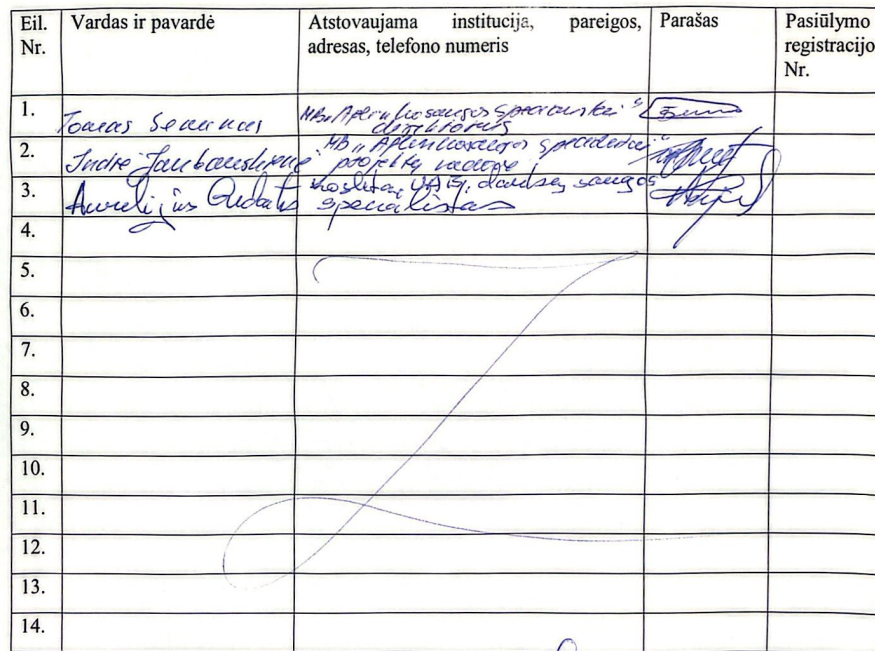 Eil. Nr.
Vardas ir pavardė
Atstovaujama institucija, pareigos, adresas, telefono numeris
Parašas
Pasiūlymo registracijo Nr.
1.
Tomas
MB „Aplinkosaugos specialistai“
direktorius
2.
Indrė Jankauskienė
MB „Aplinkosaugos specialistai“
projektų vadovė
3.
Aurelijus
UAB, darbų saugos
specialistas
4.
5.
6.
7.
8.
9.
10.
11.
12.
13.
14.